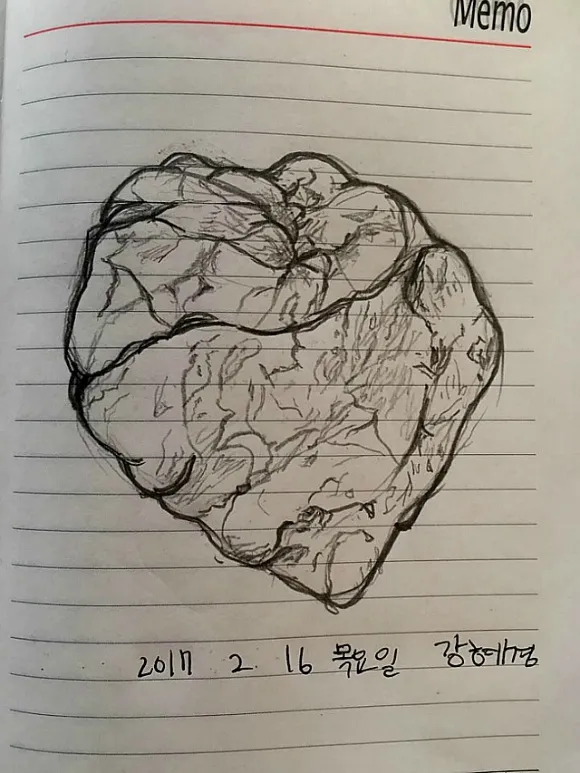 Memo
2017 2. 16 목요일 강혜경